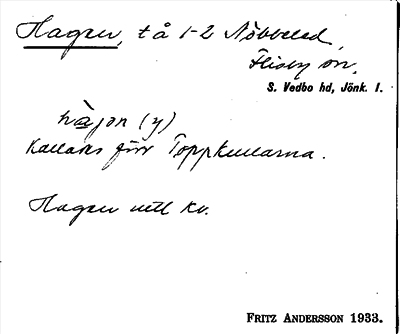 Hagen, t å 1-2 Nöbbeled,
Flisby sn,
S. Vedbo hd, Jönk. l.
hàjən (y)
Kallades förr Toppkullarna.
Hagen utl kv.
FRITZ ANDERSSON 1933.